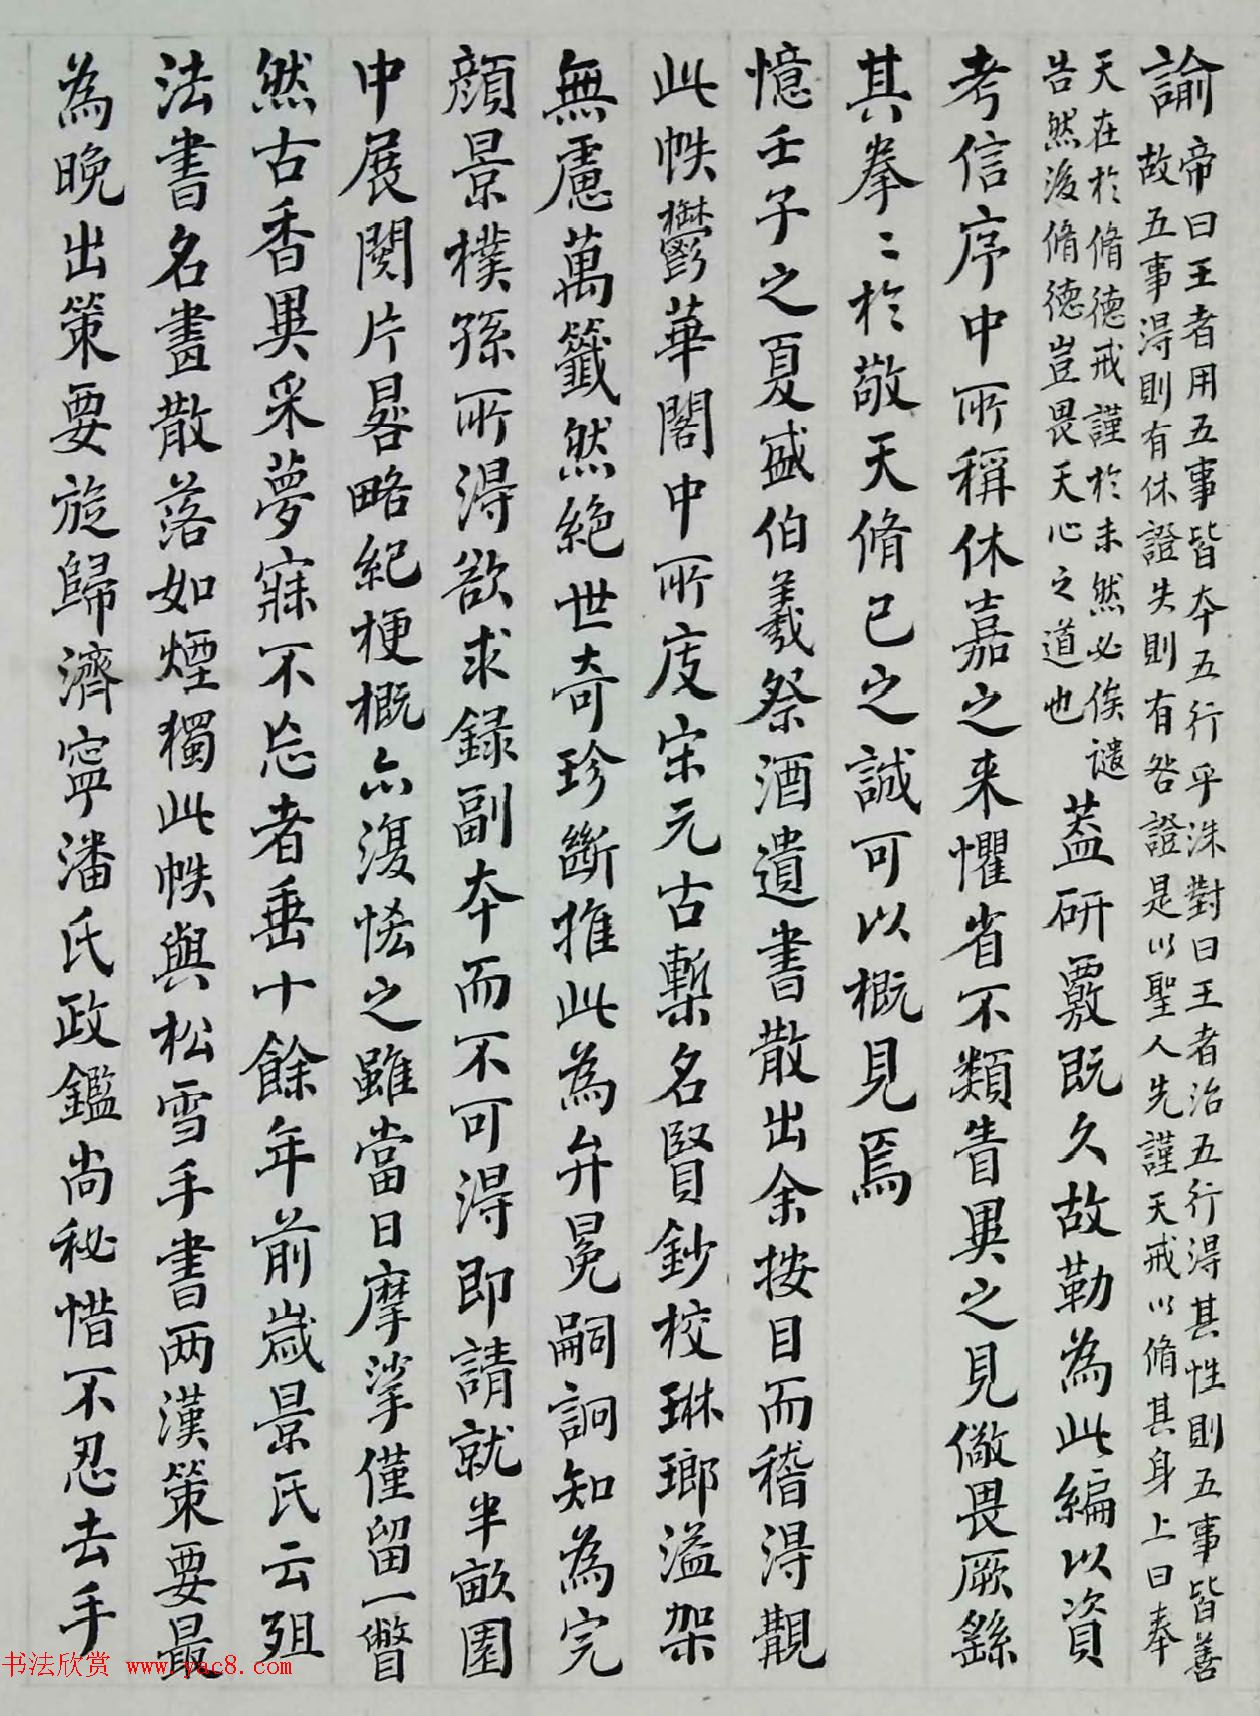 諭帝曰王者用五事皆本五行乎洙對曰王者治五行得其性則五事皆善
故五事得則有休證失則有咎證是以聖人先謹天戒以脩其身上曰奉
天在於脩德戒謹於未然必俟譴
告然後脩德豈畏天心之道也
蓋研覈既久故勒為此編以資
考信序中所稱休嘉之来懼省不類眚異之見儆畏厥繇
其拳〻於敬天脩己之誠可以概見焉
憶壬子之夏盛伯羲祭酒遺書散出余按目而稽得覩
此帙鬱華閣中所庋宋元古槧名賢鈔校琳瑯溢架
無慮萬籤然絶世奇珍斷推此為弁冕嗣詗知為完
顔景樸孫所得欲求録副本而不可得即請就半畝園
中展閱片晷略紀梗概亦復恡之雖當日摩挲僅留一瞥
然古香異采夢寐不忘者垂十餘年前歲景氏云殂
法書名畫散落如煙獨此帙與松雪手書两漢策要最
為晚出策要旋歸濟寧潘氏政鑑尚秘惜不忍去手
书法欣赏 www.yac8.com